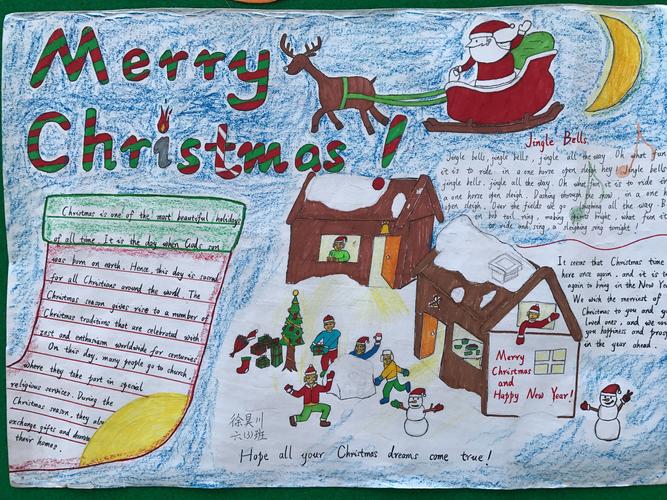 Merry
Christmas !
Jingle Bells
Jingle bells, jingle bells, jingle all the way. Oh what fun
it is to ride in a one horse open sleigh hey! Jingle bells
jingle bells, jingle all the way. Oh what fun it is to ride
open sleigh. Dashing through the snow in a one
open sleigh. Over the fields we go laughing all the way. B
on bob tail ring, making spirits bright, what fun
ride and sing, a sleighing song tonight!
Christmas is one of the most beautiful holidays
of all time. It is the day when Gods son
was born on earth. Hence this day is sacred
for all Christians around the world. The
Christmas season gives rise to a number of
Christmas traditions that are celebrated with
zest and enthusiasm worldwide for centuries.
On this day, many people go to church
where they take part in special
religious services. During the
Christmas season, they also
exchange gifts and decorate
their homes.
It seems that Christmas time
here once again, and it is
again to bring in the New Year
We wish the merriest of
Christmas to you and
loved ones, and we
you happiness and
in the year ahead.
Merry
Christmas
and
Happy New Year!
徐昊川
六(3)班
Hope all your Christmas dreams come true!